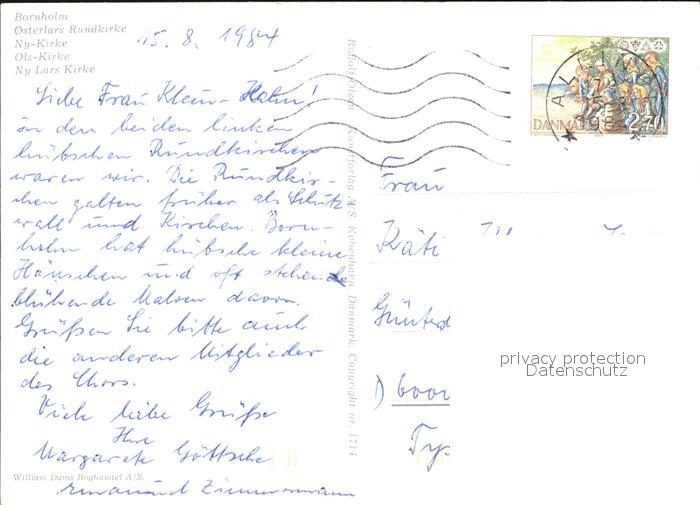 Bornholm
Østerlars Rundkirke
Ny-Kirke
Ols-Kirke
Ny Lars Kirke
15. 8. 1984
Liebe Frau Klein-Hahn!
In den beiden linken
hübschen Rundkirchen
waren wir. Die Rundkir-
chen galten früher als Schutz
wall und Kirchen. Born-
holm hat hübsche kleine
Häuschen und oft stehen
blühende Malven davor.
Grüßen Sie bitte auch
die anderen Mitglieder
des Chors.
Viele liebe Grüße
Ihre
Margarete Göttsche
Zimmermann
William Dams Boghandel A/S.
Kunstforlag A/S København, Danmark. Copyright nr. 1714
DANMARK 2.70
Frau
Käti
Günter
D 600
privacy protection
Datenschutz